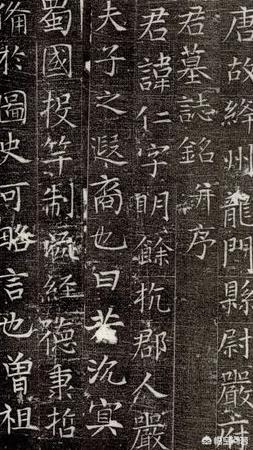 唐故絳州龍門縣尉嚴府
君墓誌銘并序
君諱仁字明餘杭郡人嚴
夫子之遐裔也曰若沉冥
蜀國投竿制流經德秉哲
備於圖史可略言也曾祖
悟空问答